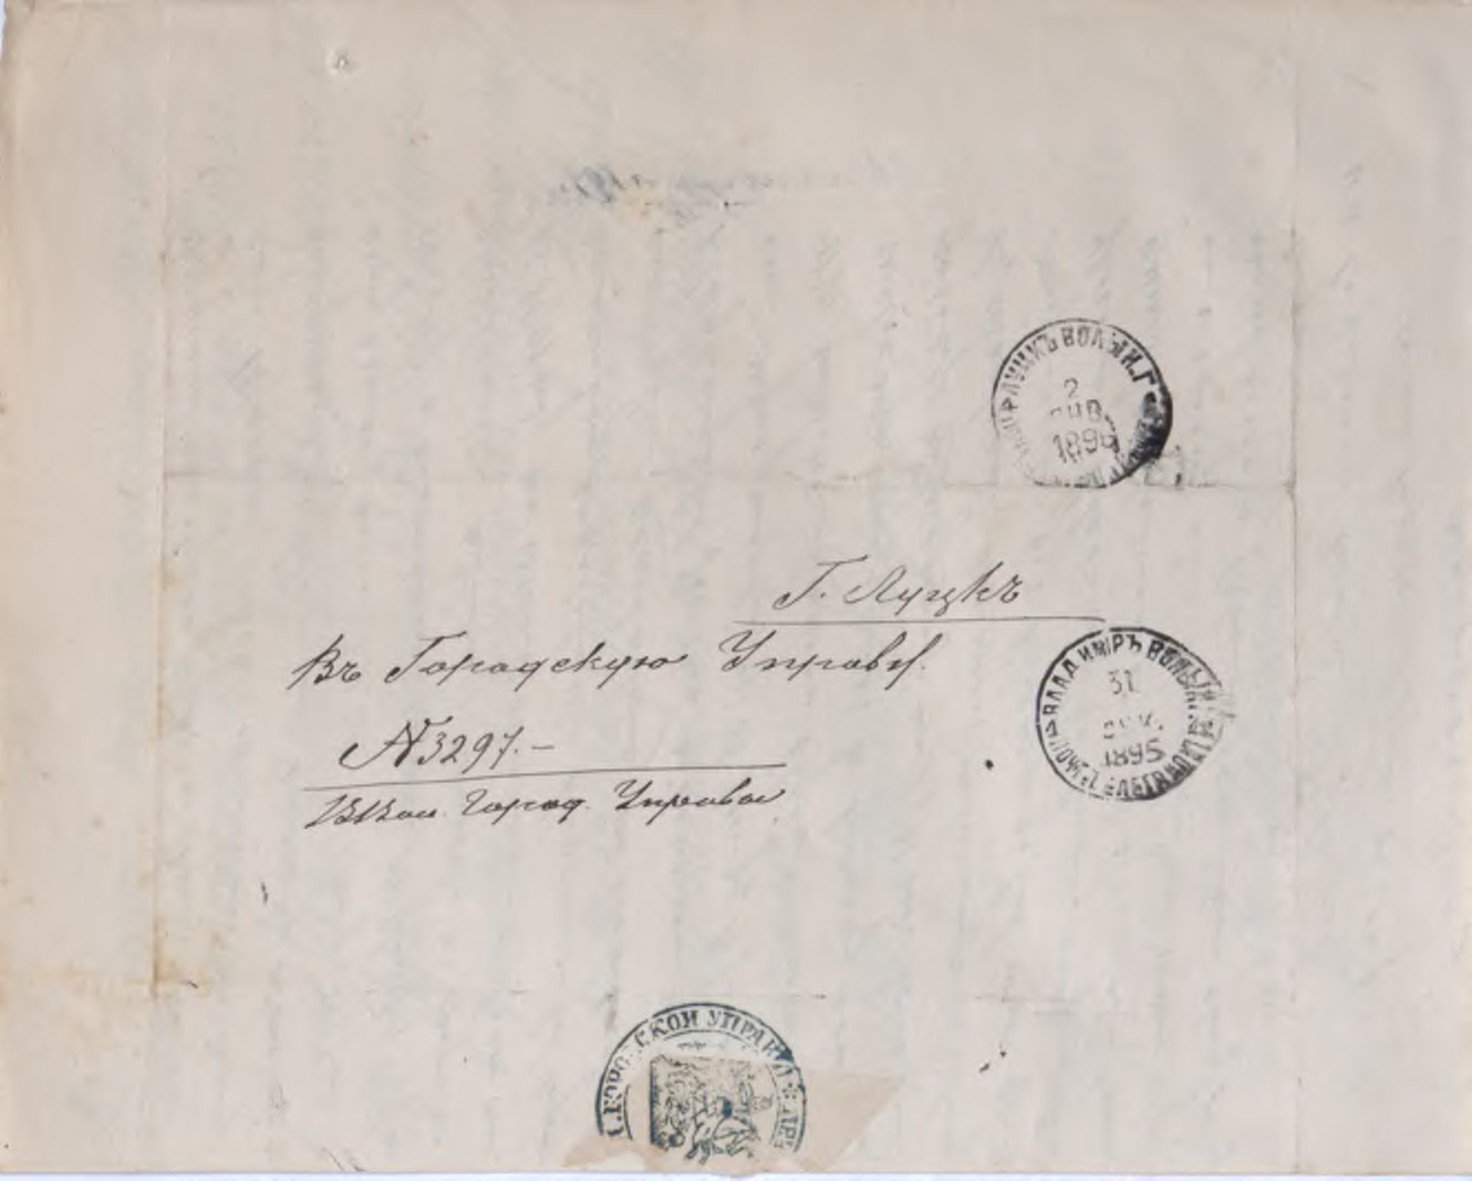 ЛУЦКЪ ВОЛЫН. Г.
2
ЯНВ.
1896
Г. Луцкъ
Въ Городскую Управу.
№ 3297.–
ВВол. Город. Управа
ВЛАДИМІРЪ ВОЛЫН
31
ДЕК.
1895
ГОРОДСКОЙ УПРАВЫ